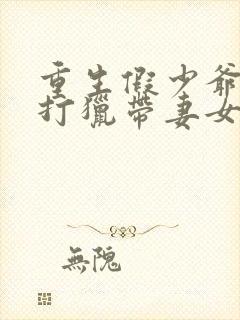 重生假少爺
打獵帶妻女
無隐